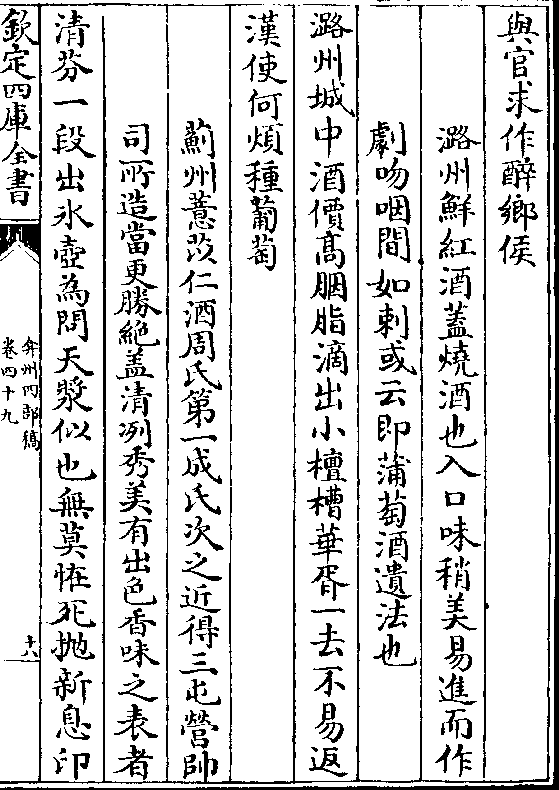 與官求作醉鄉侯
潞州鮮紅酒蓋燒酒也入口味稍美易進而作
劇吻咽間如刺或云即蒲萄酒遺法也
潞州城中酒價高胭脂滴出小檀槽華胥一去不易返
漢使何煩種葡萄
薊州薏苡仁酒周氏第一成氏次之近得三屯營帥
司所造當更勝絶盖清冽秀美有出色香味之表者
清芬一段出氷壺為問天漿似也無莫怪死抛新息印
欽定四庫全書
弇州四部稿
卷四十九
十八